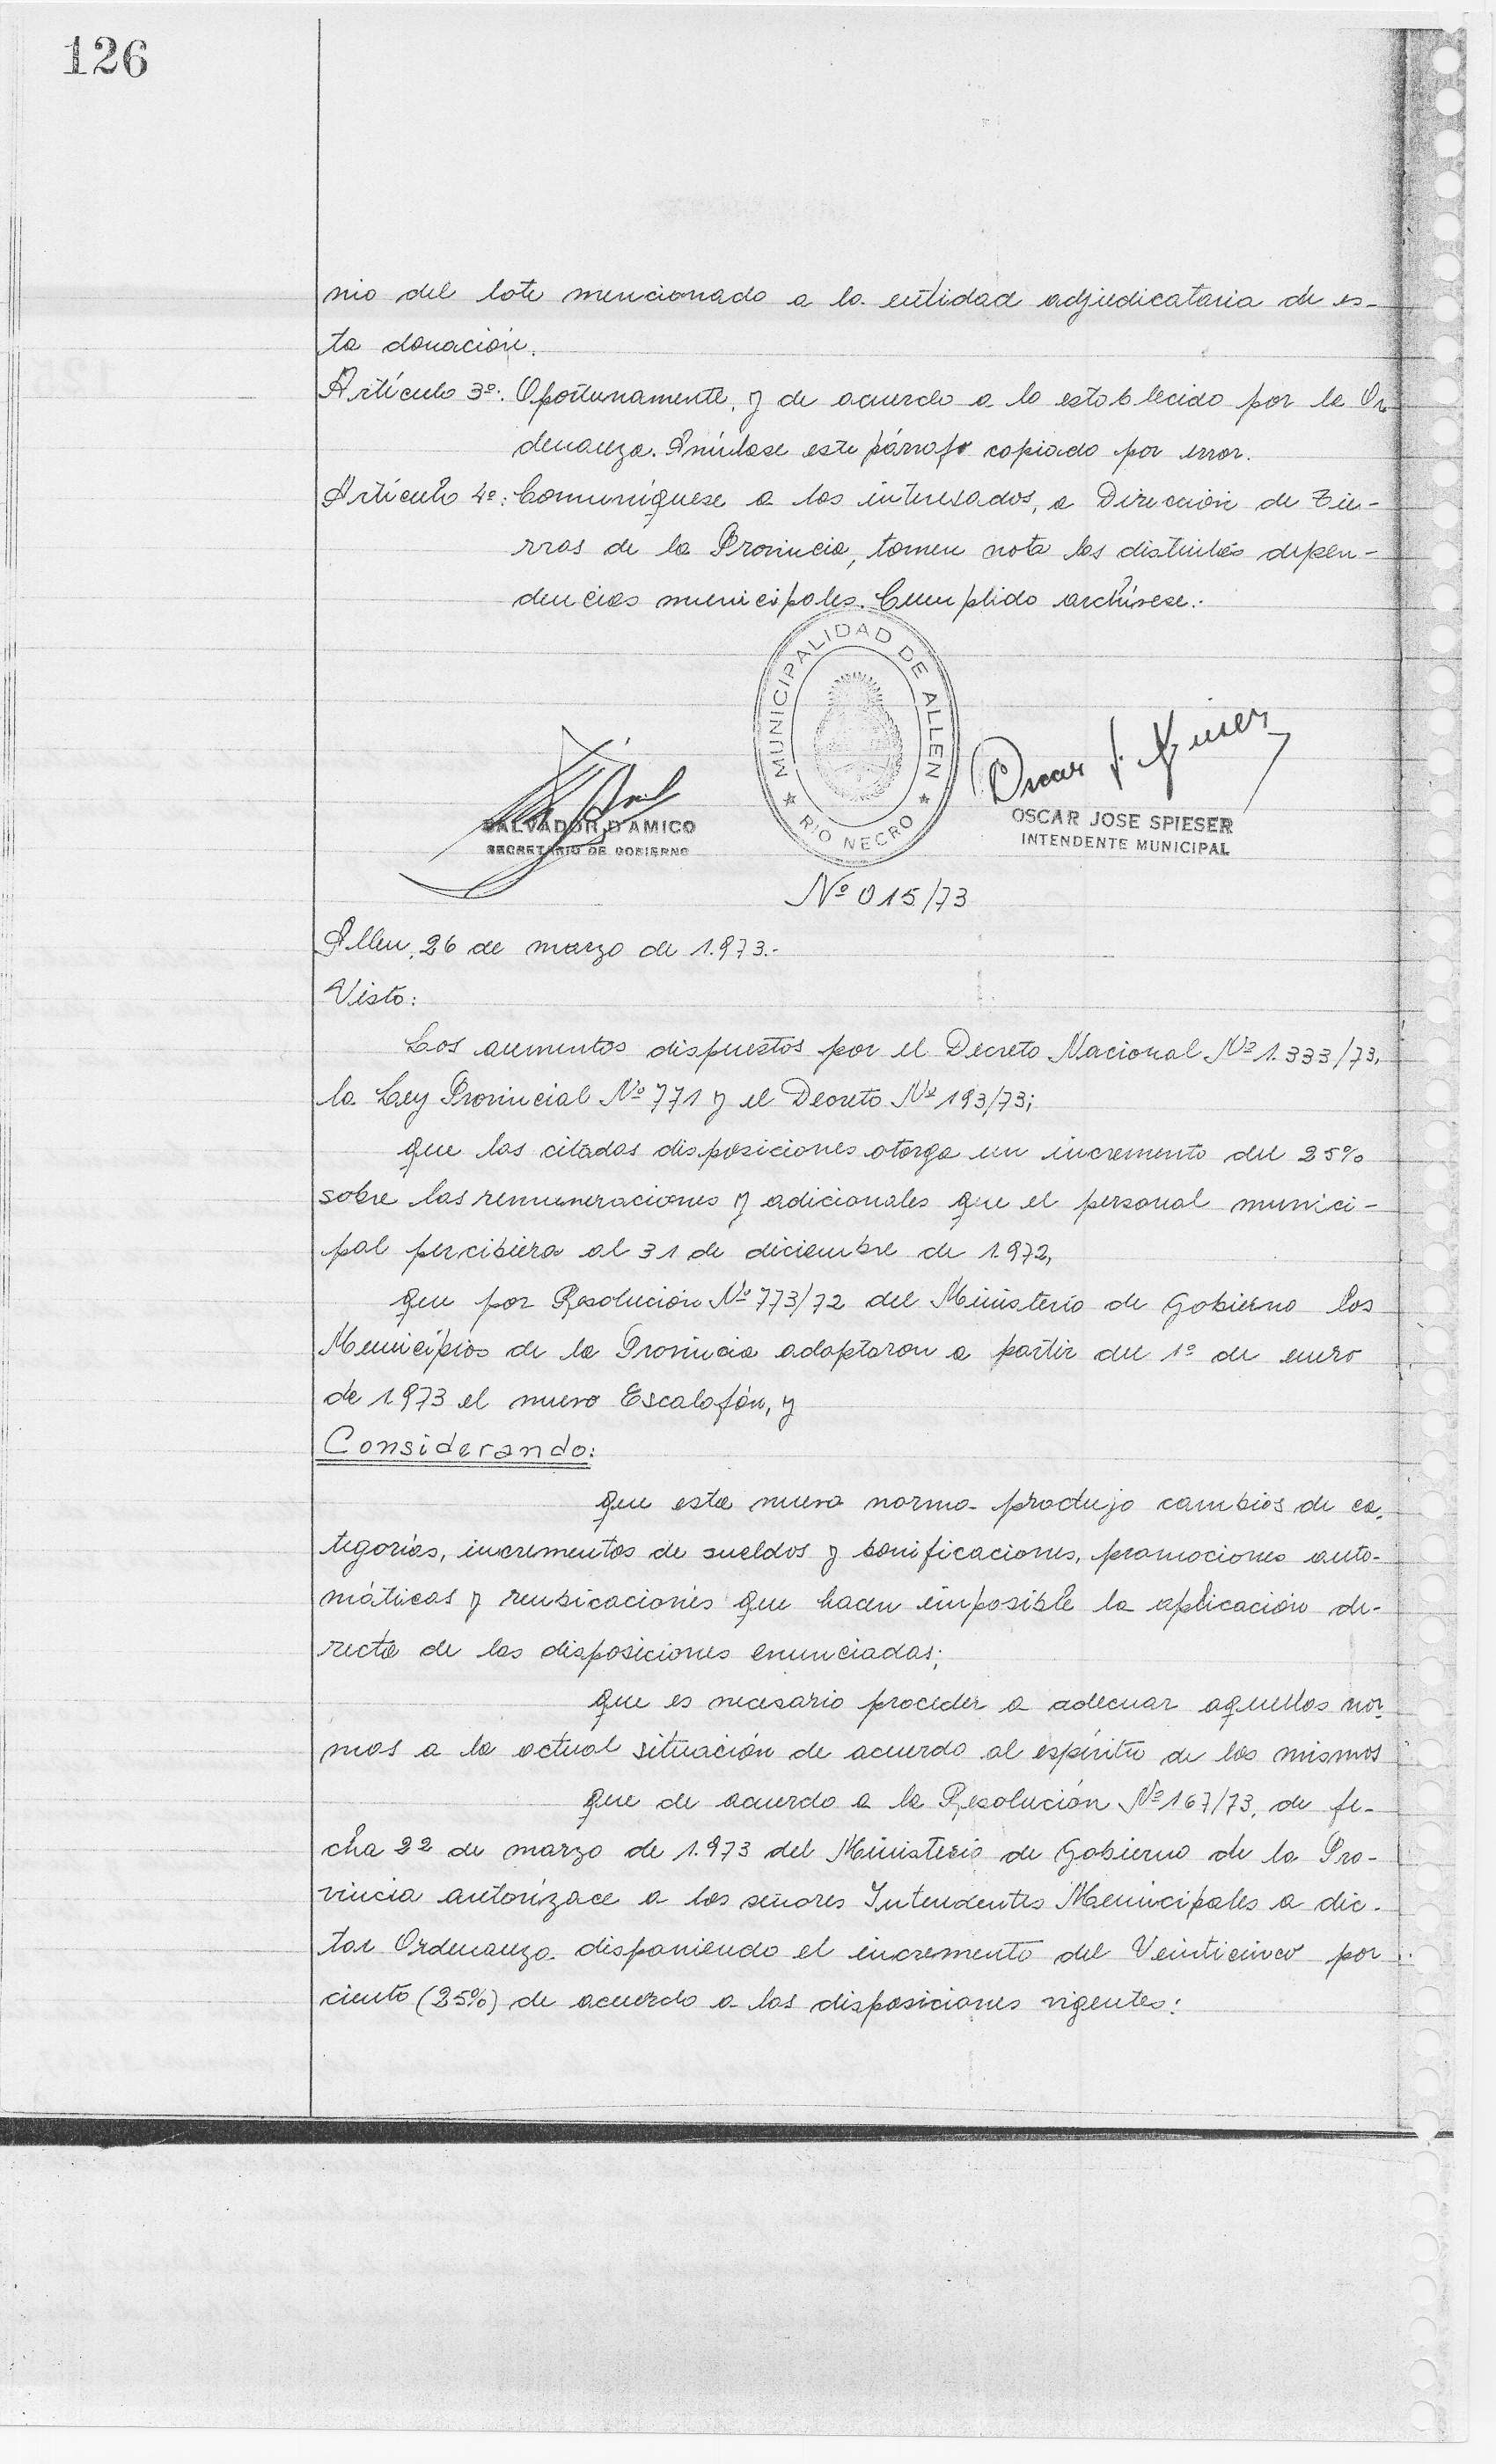 126
nio del lote mencionado a la entidad adjudicataria de es-
ta donación.
Artículo 3º: Oportunamente, y de acuerdo a lo establecido por la Or
denanza. Anúlase este párrafo copiado por error.
Artículo 4º: Comuníquese a los interesados, a Dirección de Tie-
rras de la Provincia, tomen nota las distintas depen-
dencias municipales. Cumplido archívese.-
MUNICIPALIDAD DE ALLEN
RIO NEGRO
Oscar J. Spieser
SALVADOR D'AMICO
SECRETARIO DE GOBIERNO
OSCAR JOSE SPIESER
INTENDENTE MUNICIPAL
Nº 015/73
Allen, 26 de marzo de 1.973.-
Visto:
Los aumentos dispuestos por el Decreto Nacional Nº 1.333/73,
la Ley Provincial Nº 771 y el Decreto Nº 193/73;
que las citadas disposiciones otorga un incremento del 25%
sobre las remuneraciones y adicionales que el personal munici-
pal percibiera al 31 de diciembre de 1.972,
que por Resolución Nº 773/72 del Ministerio de Gobierno los
Municipios de la Provincia adaptaron a partir del 1º de enero
de 1.973 el nuevo Escalafón, y
Considerando:
que esta nueva norma produjo cambios de ca-
tegorías, incrementos de sueldos y bonificaciones, promociones auto-
máticas y reubicaciones que hacen imposible la aplicación di-
recta de las disposiciones enunciadas;
que es necesario proceder a adecuar aquellas nor-
mas a la actual situación de acuerdo al espíritu de las mismas
que de acuerdo a la Resolución Nº 167/73, de fe-
cha 22 de marzo de 1.973 del Ministerio de Gobierno de la Pro-
vincia autorízace a los señores Intendentes Municipales a dic-
tar Ordenanza disponiendo el incremento del Veinticinco por
ciento (25%) de acuerdo a las disposiciones vigentes: